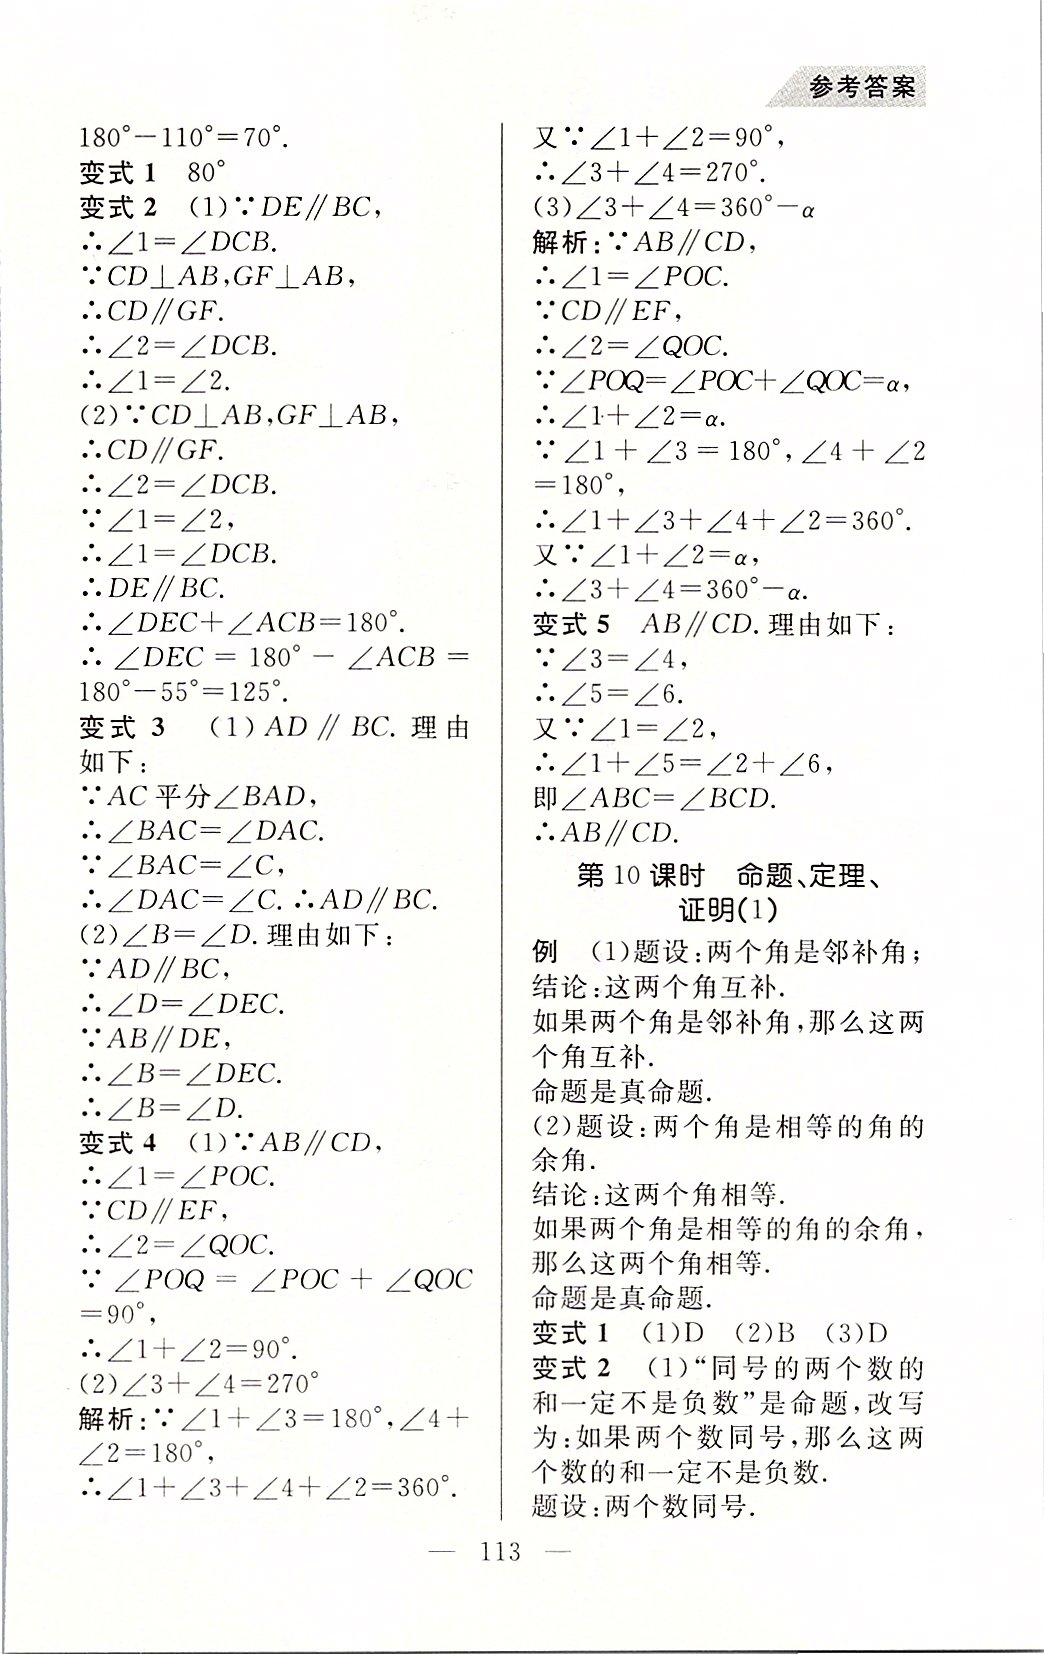 参考答案
180°－110°＝70°.
变式 1　80°
变式 2　(1)∵DE∥BC,
∴∠1＝∠DCB.
∵CD⊥AB,GF⊥AB,
∴CD∥GF.
∴∠2＝∠DCB.
∴∠1＝∠2.
(2)∵CD⊥AB,GF⊥AB,
∴CD∥GF.
∴∠2＝∠DCB.
∵∠1＝∠2,
∴∠1＝∠DCB.
∴DE∥BC.
∴∠DEC＋∠ACB＝180°.
∴∠DEC＝180°－∠ACB＝
180°－55°＝125°.
变式 3　(1)AD∥BC. 理由
如下:
∵AC 平分∠BAD,
∴∠BAC＝∠DAC.
∵∠BAC＝∠C,
∴∠DAC＝∠C. ∴AD∥BC.
(2)∠B＝∠D. 理由如下:
∵AD∥BC,
∴∠D＝∠DEC.
∵AB∥DE,
∴∠B＝∠DEC.
∴∠B＝∠D.
变式 4　(1)∵AB∥CD,
∴∠1＝∠POC.
∵CD∥EF,
∴∠2＝∠QOC.
∵∠POQ＝∠POC＋∠QOC
＝90°,
∴∠1＋∠2＝90°.
(2)∠3＋∠4＝270°
解析:∵∠1＋∠3＝180°,∠4＋
∠2＝180°,
∴∠1＋∠3＋∠4＋∠2＝360°.
又∵∠1＋∠2＝90°,
∴∠3＋∠4＝270°.
(3)∠3＋∠4＝360°－α
解析:∵AB∥CD,
∴∠1＝∠POC.
∵CD∥EF,
∴∠2＝∠QOC.
∵∠POQ＝∠POC＋∠QOC＝α,
∴∠1＋∠2＝α.
∵∠1＋∠3＝180°,∠4＋∠2
＝180°,
∴∠1＋∠3＋∠4＋∠2＝360°.
又∵∠1＋∠2＝α,
∴∠3＋∠4＝360°－α.
变式 5　AB∥CD. 理由如下:
∵∠3＝∠4,
∴∠5＝∠6.
又∵∠1＝∠2,
∴∠1＋∠5＝∠2＋∠6,
即∠ABC＝∠BCD.
∴AB∥CD.
第 10 课时　命题、定理、
证明(1)
例　(1)题设:两个角是邻补角;
结论:这两个角互补.
如果两个角是邻补角,那么这两
个角互补.
命题是真命题.
(2)题设:两个角是相等的角的
余角.
结论:这两个角相等.
如果两个角是相等的角的余角,
那么这两个角相等.
命题是真命题.
变式 1　(1)D　(2)B　(3)D
变式 2　(1)“同号的两个数的
和一定不是负数”是命题,改写
为:如果两个数同号,那么这两
个数的和一定不是负数.
题设:两个数同号.
— 113 —